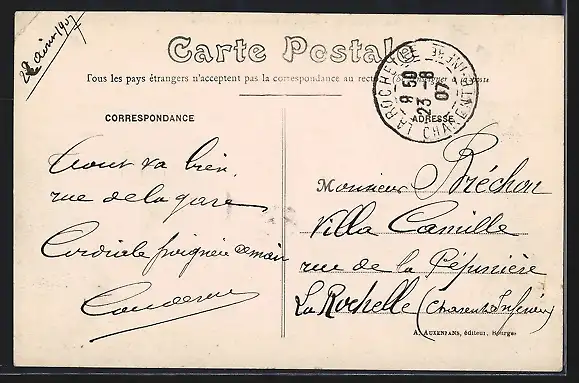 Carte Postale
Tous les pays étrangers n'acceptent pas la correspondance au recto (Se renseigner à la poste
CORRESPONDANCE
ADRESSE
LA ROCHELLE
9 50
23 -8
07
CHARENTE INFRE
Tout va bien,
rue de la gare,
Cordiale poignée de main
Monsieur Bréchon
Villa Camille
rue de la Pépinière
La Rochelle (Charente Inférieure)
A. AUXENFANS, éditeur, Bourges